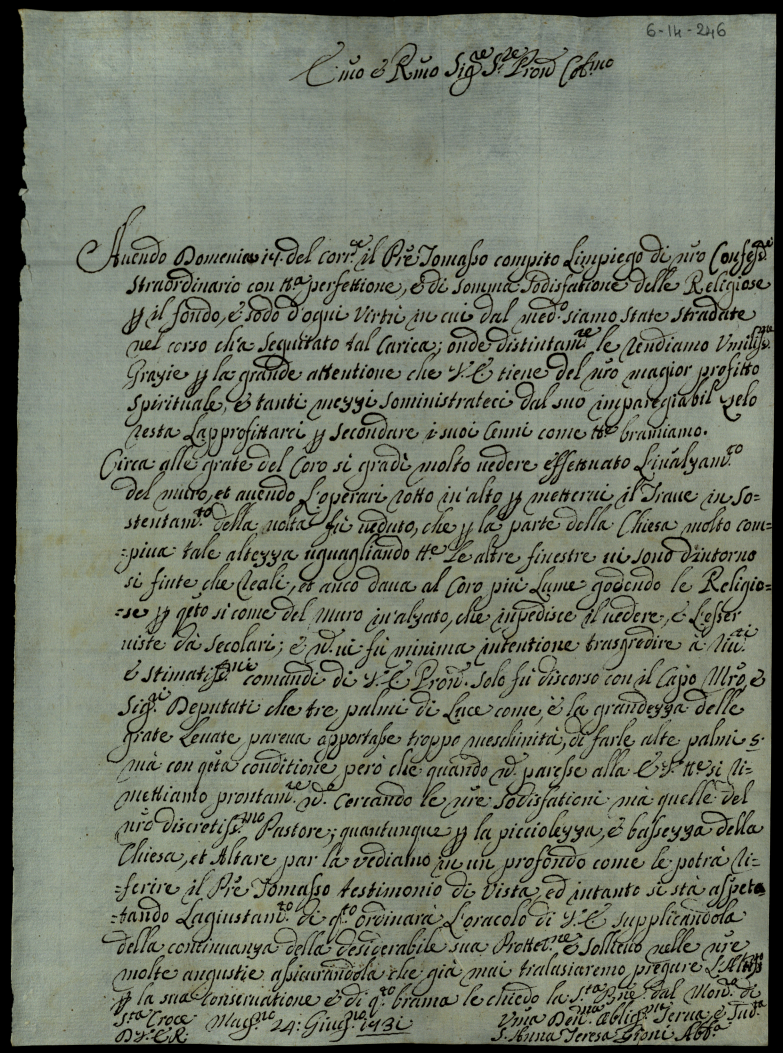 6-14-246
E.mo e R.mo Sig.re S.re Pron Col.mo
Auendo Domenica 14. del corr.e il Pre Tomasso compito L'impiego di nro Confess.re
straordinario con tt.a perfettione, e di somma sodisfatione delle Religiose
p il fondo, e sodo d'ogni Virtù in cui dal med.o siamo state stradate
nel corso ch'a seguitato tal Carica; onde distintam.te le rendiamo Vmiliss.me
Grazie p la grande attentione che V.E tiene del nro magior profitto
spirituale, e tanti mezzi soministrateci dal suo imparegiabil zelo
resta L'approfittarci p secondare i suoi Cenni come tt.e bramiamo.
Circa alle grate del Coro si gradì molto uedere effettuato L'inalzam.to
del muro, et auendo L'operari rotto in'alto p metterui il Traue in so=
stentam.to della uolta fù ueduto, che p la parte della Chiesa molto com=
=piua tale altezza uguagliando tt.e le altre finestre ui sono d'intorno
si finte che reali, et anco daua al Coro più Lume godendo le Religio=
=se p q.to si come del muro in'alzato, che inpedisce il uedere, e L'esser
uiste da secolari; e n. ui fù minima intentione trasgredire à riu.ti
e stimatiss.mi comandi di V.E Pron. solo fù discorso con il Capo Mro, e
Sig.ri Deputati che tre palmi di Luce come, è la grandezza delle
grate Leuate pareua apportasse troppo meschinità, di farle alte palmi 5.
mà con q.ta conditione però che quando n. paresse alla E.V. tt.e si ri=
mettiamo prontam.te n. Cercando le nre sodisfationi mà quelle del
nro discretiss.mo Pastore; quantunque p la picciolezza, e bassezza della
Chiesa, et Altare par la vediamo in un profondo come le potrà ri=
=ferire il Pre Tomasso testimonio di Vista, ed intanto si stà aspeta=
=tando L'agiustam.to di q.to ordinarà L'oracolo di V.E supplicandola
della continuanza della desiderabile sua Prottet.ne e sollieuo nelle nre
molte angustie assicurandola che già mai tralasiaremo pregare L'Altis.mo
p la sua Conseruatione e di q.to brama le chiedo la S.ta Bne. dal Mon.o di
S.ta Croce Mag.no 24: Giug.no 1731
D.V.E.R. Vma Deu.ma Obligs.ma Serua e Sud.ta
S. Anna Teresa Ab.a